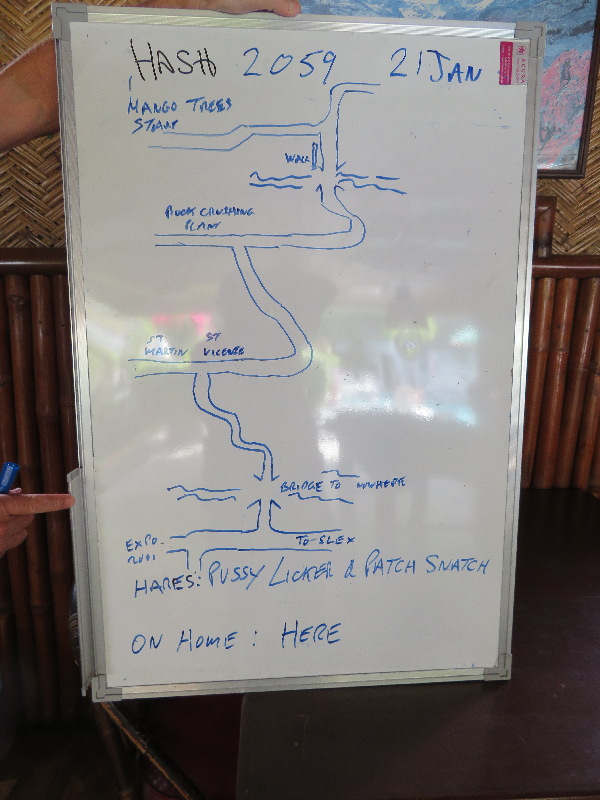 HASH 2059 21 JAN
MANGO TREES
START
WALL
ROCK CRUSHING
PLANT
ST. ST
MARTIN VICENTE
BRIDGE TO NOWHERE
EXPO. TO-SLEX
2001
HARES: PUSSY LICKER & PATCH SNATCH
ON HOME : HERE